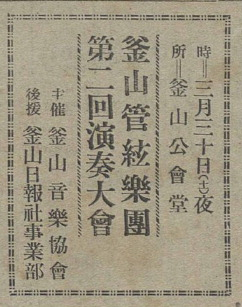 時=三月三十日(土)夜
所=釜山公會堂
釜山管絃樂團
第二回演奏大會
主催 釜山音樂協會
後援 釜山日報社事業部